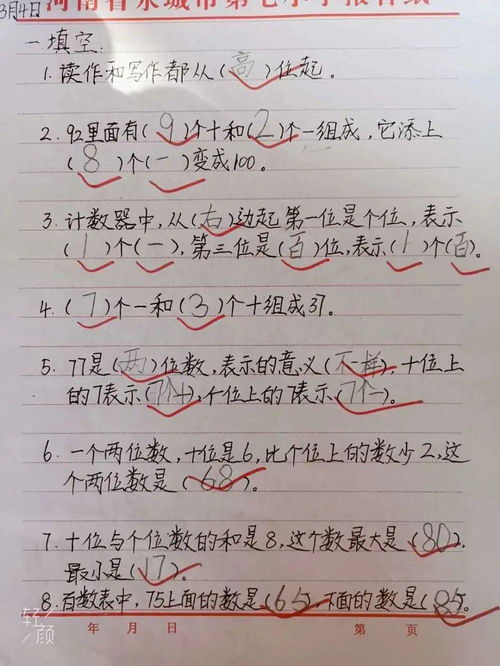 3月4日
河南省永城市第七小学报告纸
一.填空:
1.读作和写作都从(高)位起。
2.92里面有(9)个十和(2)个一组成,它添上
(8)个(一)变成100。
3.计数器中,从(右)边起第一位是个位,表示
(1)个(一),第三位是(百)位,表示(1)个(百)。
4.(7)个一和(3)个十组成37。
5.77是(两)位数,表示的意义(不一样),十位上
的7表示(7个十),个位上的7表示(7个一)。
6.一个两位数,十位是6,比个位上的数少2,这
个两位数是(68)。
7.十位与个位数的和是8,这个数最大是(80),
最小是(17)。
8.百数表中,75上面的数是(65),下面的数是(85)。
轻颜
年 月 日 第 页